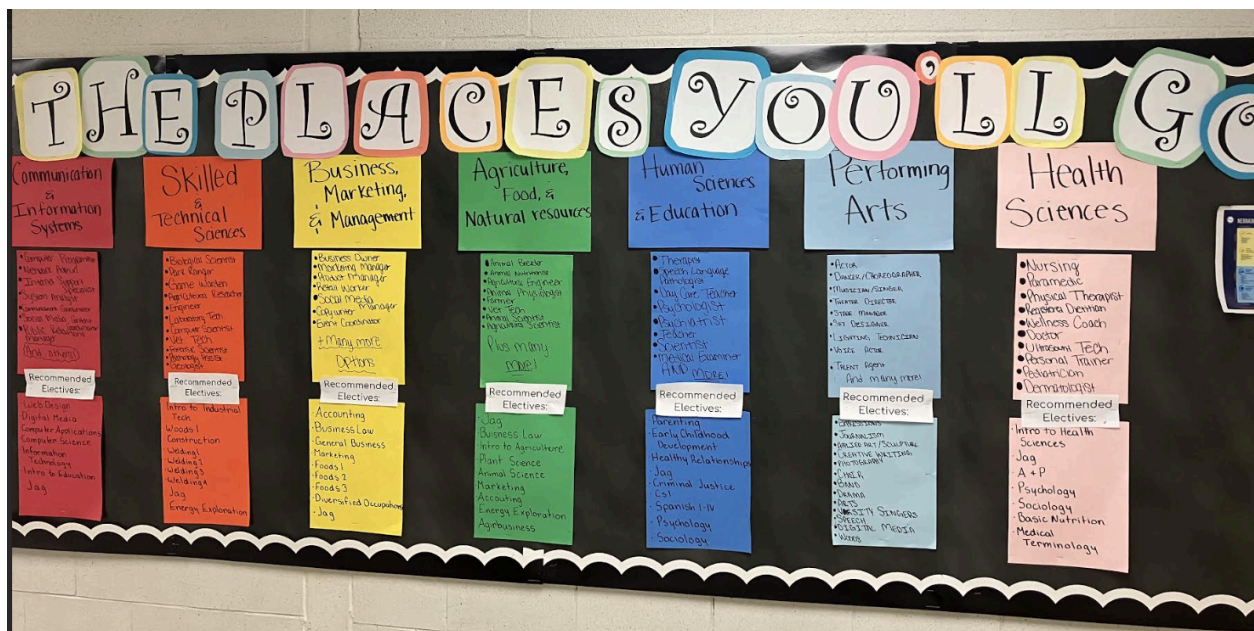 THE PLACES YOU'LL GO
Communication
&
Information
Systems
• Computer Programmer
• Network Admin
• Internet Support
Specialist
• System Analyst
• Communications Coordinator
• Social Media Content
• Public Relations
Manager
(And others!)
Recommended
Electives:
· Web Design
· Digital Media
· Computer Applications
· Computer Science
· Information
Technology
· Intro to Education
· Jag
Skilled
&
Technical
Sciences
• Biological Scientist
• Park Ranger
• Game Warden
• Agricultural Researcher
• Engineer
• Laboratory Tech
• Computer Scientist
• Vet Tech
• Forensic Scientist
• Geologist
Recommended
Electives:
Intro to Industrial
Tech
Woods 1
Construction
Welding 1
Welding 2
Welding 3
Welding 4
Jag
Energy Exploration
Business,
Marketing,
& Management
• Business Owner
• Marketing Manager
• Product Manager
• Retail Worker
• Social Media
Manager
• Copywriter
• Event Coordinator
+ Many more
Options
Recommended
Electives:
· Accounting
· Business Law
· General Business
· Marketing
· Foods 1
· Foods 2
· Foods 3
· Diversified Occupations
· Jag
Agriculture,
Food, &
Natural resources
• Animal Breeder
• Animal Nutritionist
• Agricultural Engineer
• Animal Physiologist
• Farmer
• Vet Tech
• Animal Scientist
• Agricultural Scientist
Plus many
more!
Recommended
Electives:
· Jag
Business Law
Intro to Agriculture
Plant Science
Animal Science
Marketing
Accouting
Energy Exploration
Agirbusiness
Human
Sciences
& Education
• Therapist
• Speech Language
Pathologist
• Day Care Teacher
• Psychologist
• Psychiatrist
• Teacher
• Scientist
• Medical Examiner
AND MORE!
Recommended
Electives:
· Parenting
· Early Childhood
Development
· Healthy Relationships
· Jag
· Criminal Justice
CSI
· Spanish I-IV
· Psychology
· Sociology
Performing
Arts
• ACTOR
• DANCER/CHOREOGRAPHER
• MUSICIAN/SINGER
• THEATER DIRECTOR
• STAGE MANAGER
• SET DESIGNER
• LIGHTING TECHNICIAN
• VOICE ACTOR
• TALENT AGENT
And many more!
Recommended
Electives:
• JOURNALISM
• APPLIED ART/SCULPTURE
• CREATIVE WRITING
• PHOTOGRAPHY
• CHOIR
• BAND
• DRAMA
• ARTS
• VARSITY SINGERS
• SPEECH
• DIGITAL MEDIA
• WOODS
Health
Sciences
• Nursing
• Paramedic
• Physical Therapist
• Registered Dietitian
• Wellness Coach
• Doctor
• Ultrasound Tech
• Personal Trainer
• Pediatrician
• Dermatologist
Recommended
Electives:
· Intro to Health
Sciences
· Jag
· A + P
· Psychology
· Sociology
· Basic Nutrition
· Medical
Terminology